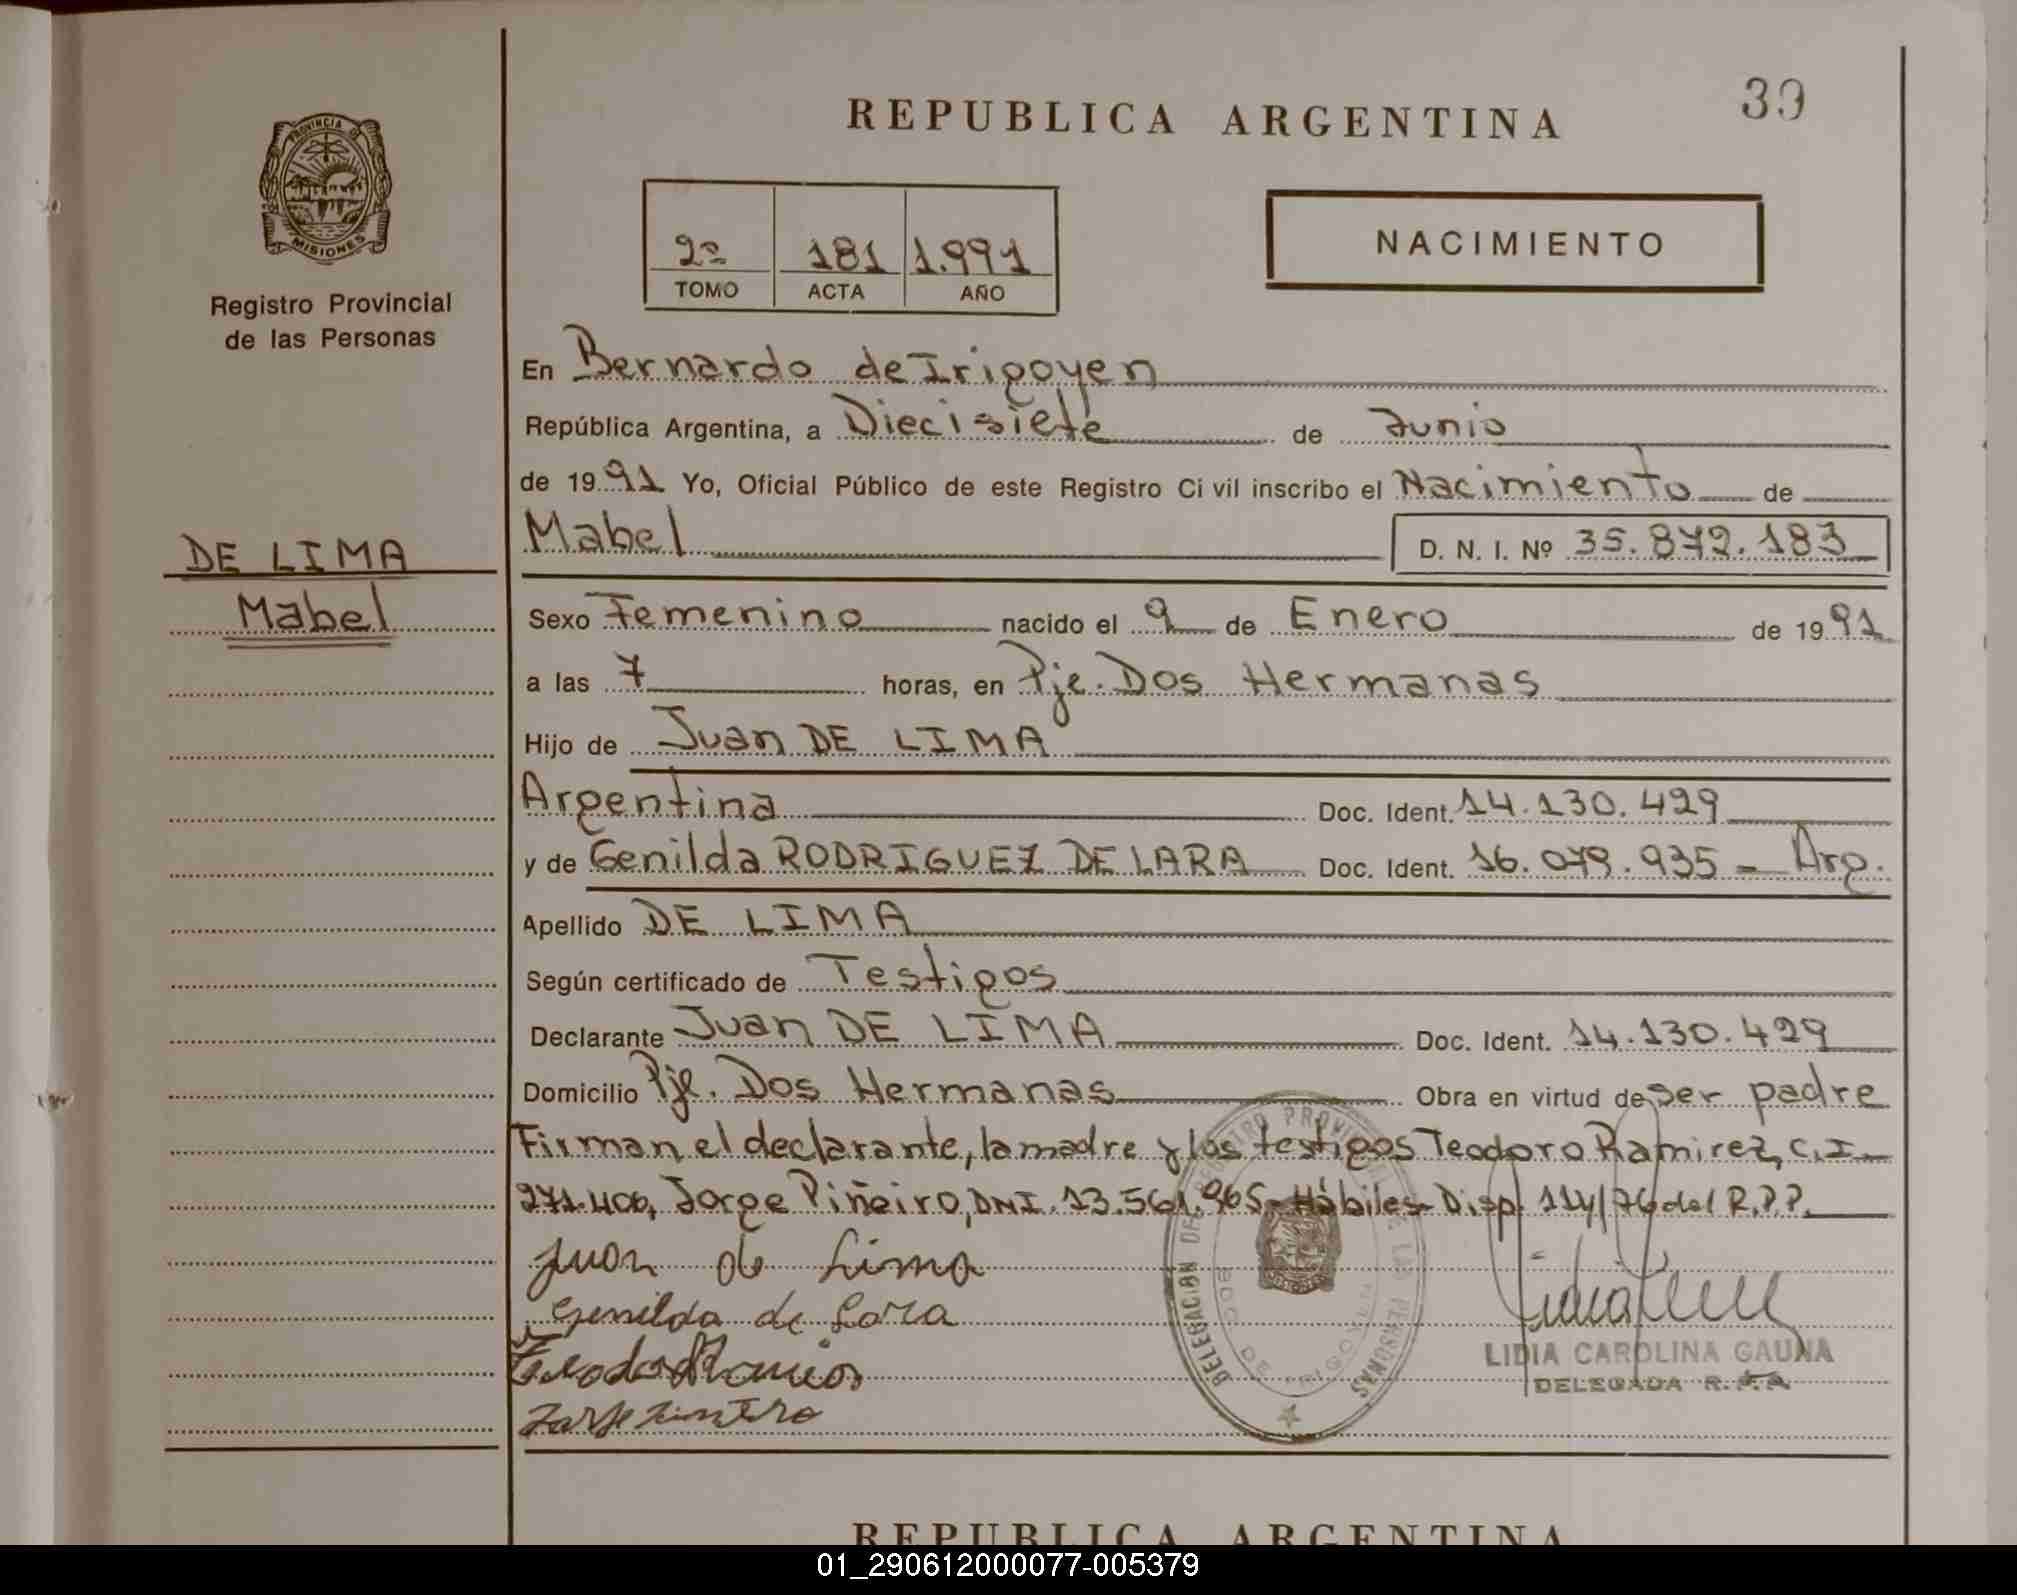 39
REPUBLICA ARGENTINA
PROVINCIA DE
MISIONES
Registro Provincial
de las Personas
2º 181 1.991
TOMO ACTA AÑO
NACIMIENTO
En Bernardo de Irigoyen
República Argentina, a Diecisiete de Junio
de 1991 Yo, Oficial Público de este Registro Civil inscribo el Nacimiento de
Mabel D. N. I. Nº 35.872.183
DE LIMA
Mabel
Sexo Femenino nacido el 9 de Enero de 1991
a las 7 horas, en Pje. Dos Hermanas
Hijo de Juan DE LIMA
Argentina Doc. Ident. 14.130.429
y de Genilda RODRIGUEZ DE LARA Doc. Ident. 16.079.935 - Arg.
Apellido DE LIMA
Según certificado de Testigos
Declarante Juan DE LIMA Doc. Ident. 14.130.429
Domicilio Pje. Dos Hermanas Obra en virtud de ser padre
Firman el declarante, la madre y los testigos Teodoro Ramirez, C.I.
271.406, Jorge Piñeiro, DNI. 13.561.965- Hábiles- Disp. 114/76 del R.P.P.
Juan de Lima
Genilda de Lara
LIDIA CAROLINA GAUNA
DELEGADA
DELEGACION DEL REGISTRO PROVINCIAL DE LAS PERSONAS
BDO. DE IRIGOYEN
REPUBLICA ARGENTINA
01_290612000077-005379